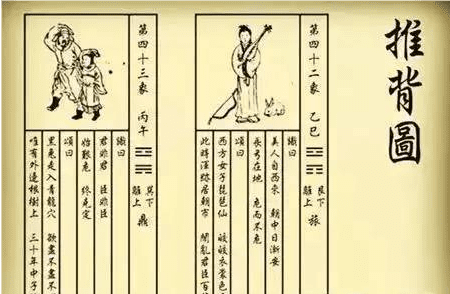 推背圖
第四十二象 乙巳
艮下離上 旅
讖曰
美人自西來 朝中日漸安
長弓在地 危而不危
頌曰
西方女子琵琶仙 皎皎衣裳色
此時渾跡居朝市 鬧亂君臣百
第四十三象 丙午
巽下離上 鼎
讖曰
君非君 臣非臣
始艱危 終克定
頌曰
黑兔走入青龍穴 欲盡不盡不
唯有外邊根樹上 三十年中子